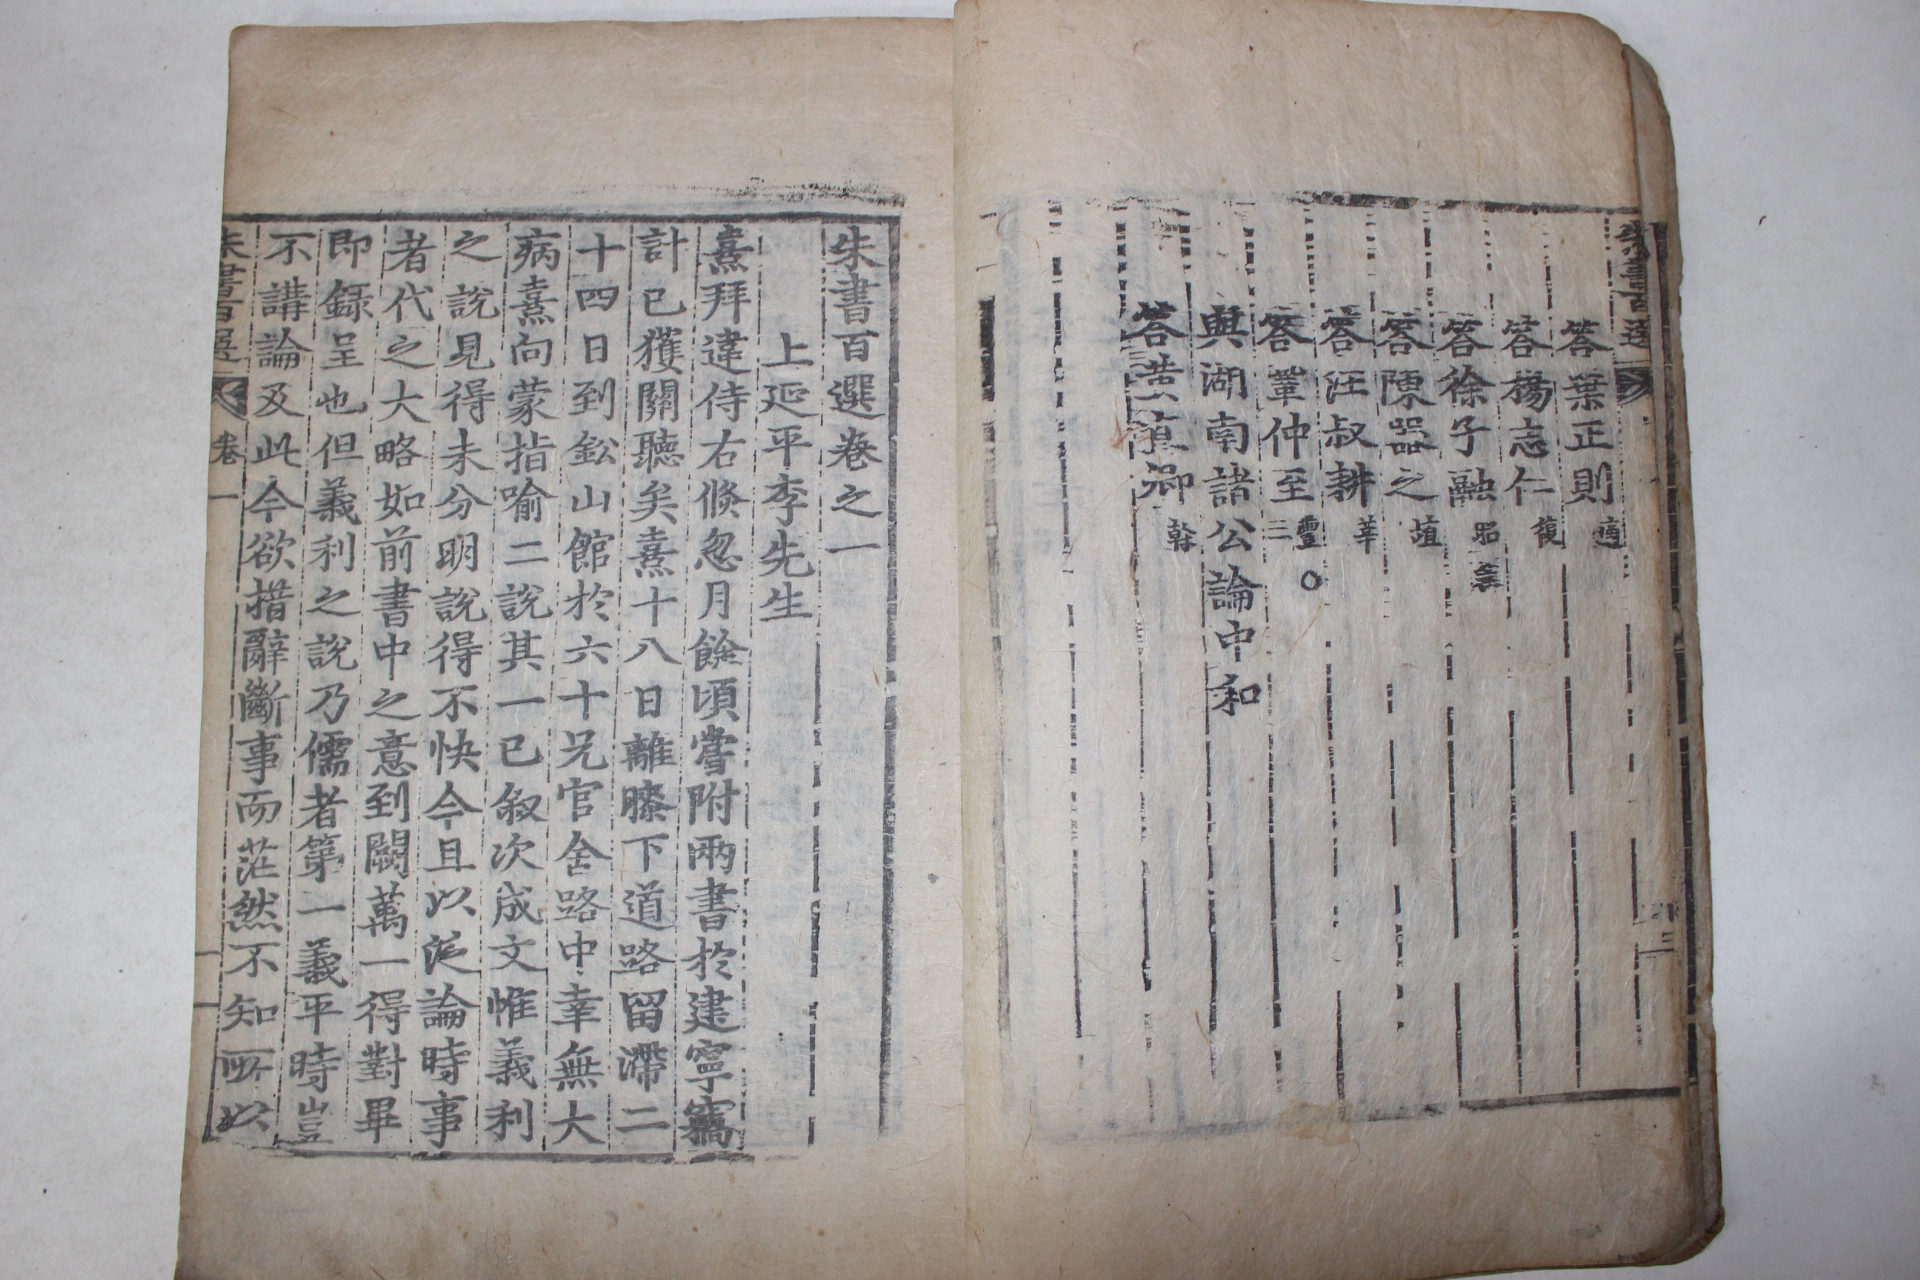 朱書百選
答葉正則適
答楊志仁復
答徐子融昭然
答陳器之埴
答汪叔耕莘
答鞏仲至豐三○
與湖南諸公論中和
答黃直卿榦
朱書百選卷之一
上延平李先生
熹拜違侍右倏忽月餘頃嘗附兩書於建寧竊
計已獲關聽矣熹十八日離膝下道路留滯二
十四日到鉛山館於六十兄官舍路中幸無大
病熹向蒙指喻二說其一已敍次成文惟義利
之說見得未分明說得不快今且以泛論時事
者代之大略如前書中之意到闕萬一得對畢
即錄呈也但義利之說乃儒者第一義平時豈
不講論及此今欲措辭斷事而茫然不知所以
朱書百選 卷一